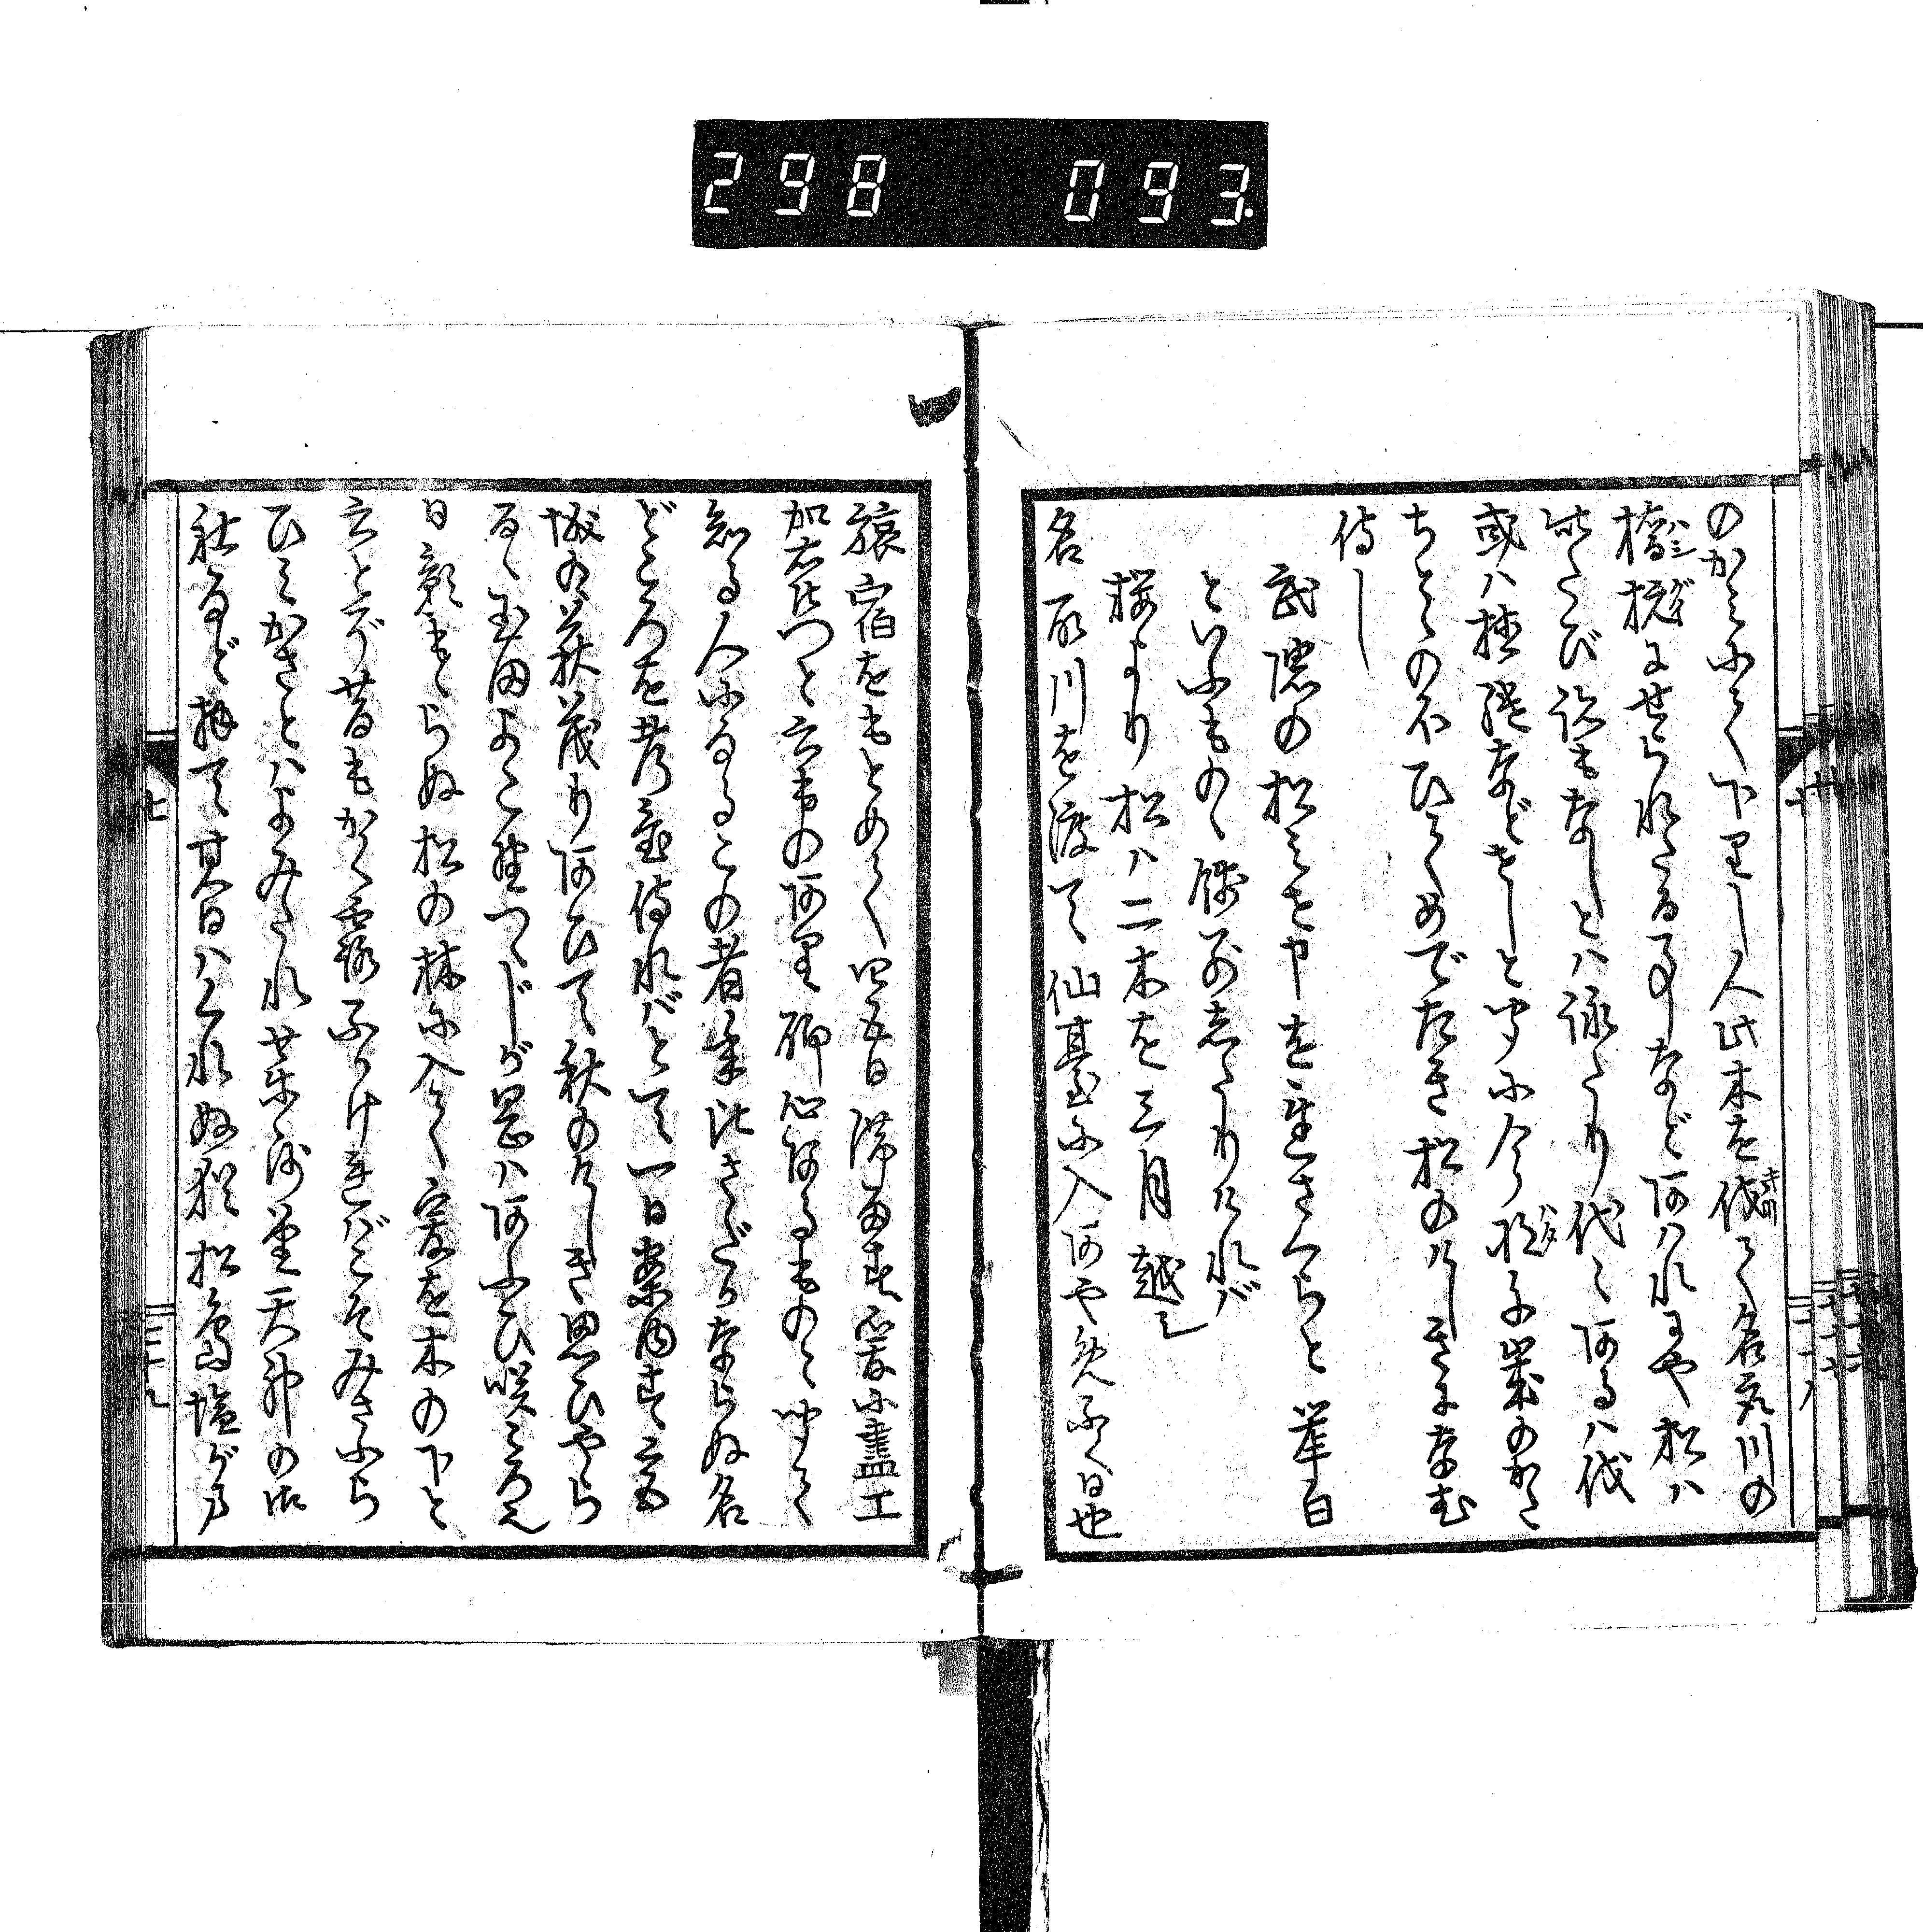 298 093
のかみにて下りし人此木を伐て名取川の
橋杭にせられたる事など阿ハれにや松ハ
此たび跡もなしとハ詠たり代々阿るハ伐
或ハ植継などせしと聞に今将千歳のかた
ちとゝのひてめでたき松のけしきになむ
侍し
武隈の松みせ申せ遅さくらと挙白
といふものゝ餞別したりけれバ
桜より松ハ二木を三月越し
名取川を渡て仙台に入阿やめふく日也
旅宿をもとめて四五日滞留す爰に畫工
加右衛門と云もの阿り聊心阿るものと聞て
知る人になるこの者年比さだかならぬ名
どころを考置侍れバとて一日案内す宮
城野萩茂り阿ひて秋のけしき思ひやら
るゝ玉田よこ野つゝじが岡ハ阿せひ咲ころ也
日影もらぬ松の林に入て爰を木の下と
云とぞ昔もかく露ふかけれバこそみさふら
ひみかさとハよみたれ薬師堂天神の御
社など拝て其日ハくれぬ猶松嶋塩がま